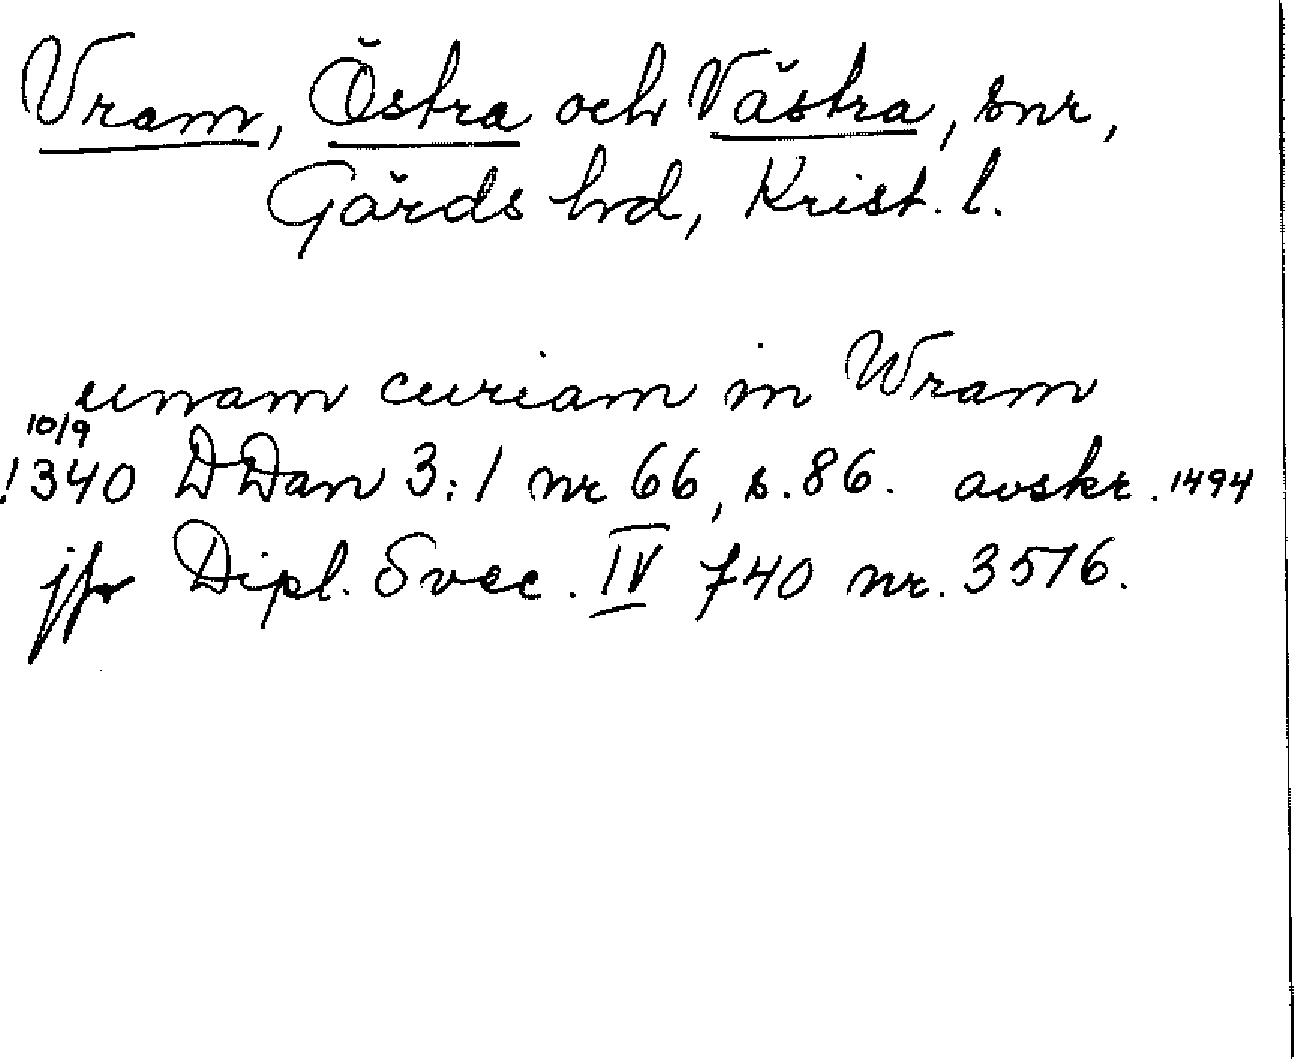 Vram, Östra och Västra, snr,
Gärds hrd, Krist. l.
unam curiam in Wram
10/9
1340 DDan 3:1 nr 66, s. 86. avskr. 1494
jfr Dipl. Svec. IV 740 nr. 3516.